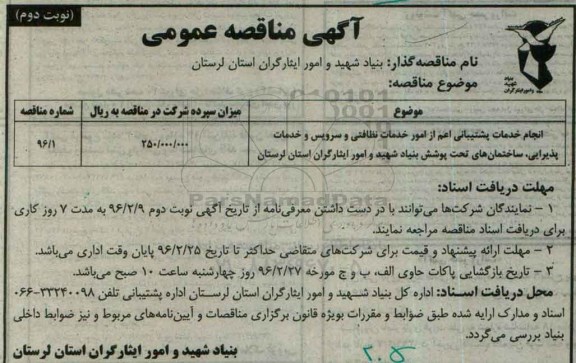 (نوبت دوم)
آگهی مناقصه عمومی
بنیاد شهید و امور ایثارگران
نام مناقصه‌گذار: بنیاد شهید و امور ایثارگران استان لرستان
موضوع مناقصه:
موضوع
میزان سپرده شرکت در مناقصه به ریال
شماره مناقصه
انجام خدمات پشتیبانی اعم از امور خدمات نظافتی و سرویس و خدمات
پذیرایی، ساختمان‌های تحت پوشش بنیاد شهید و امور ایثارگران استان لرستان
۲۵۰/۰۰۰/۰۰۰
۹۶/۱
ParsNamadData
مهلت دریافت اسناد:
۱ - نمایندگان شرکت‌ها می‌توانند با در دست داشتن معرفی‌نامه از تاریخ آگهی نوبت دوم ۹۶/۲/۹ به مدت ۷ روز کاری
برای دریافت اسناد مناقصه مراجعه نمایند.
۲ - مهلت ارائه پیشنهاد و قیمت برای شرکت‌های متقاضی حداکثر تا تاریخ ۹۶/۲/۲۵ پایان وقت اداری می‌باشد.
۳ - تاریخ بازگشایی پاکات حاوی الف، ب و ج مورخه ۹۶/۲/۲۷ روز چهارشنبه ساعت ۱۰ صبح می‌باشد.
محل دریافت اسناد: اداره کل بنیاد شهید و امور ایثارگران استان لرستان اداره پشتیبانی تلفن ۳۳۲۴۰۰۹۸-۰۶۶
اسناد و مدارک ارایه شده طبق ضوابط و مقررات بویژه قانون برگزاری مناقصات و آیین‌نامه‌های مربوط و نیز ضوابط داخلی
بنیاد بررسی می‌گردد.
بنیاد شهید و امور ایثارگران استان لرستان